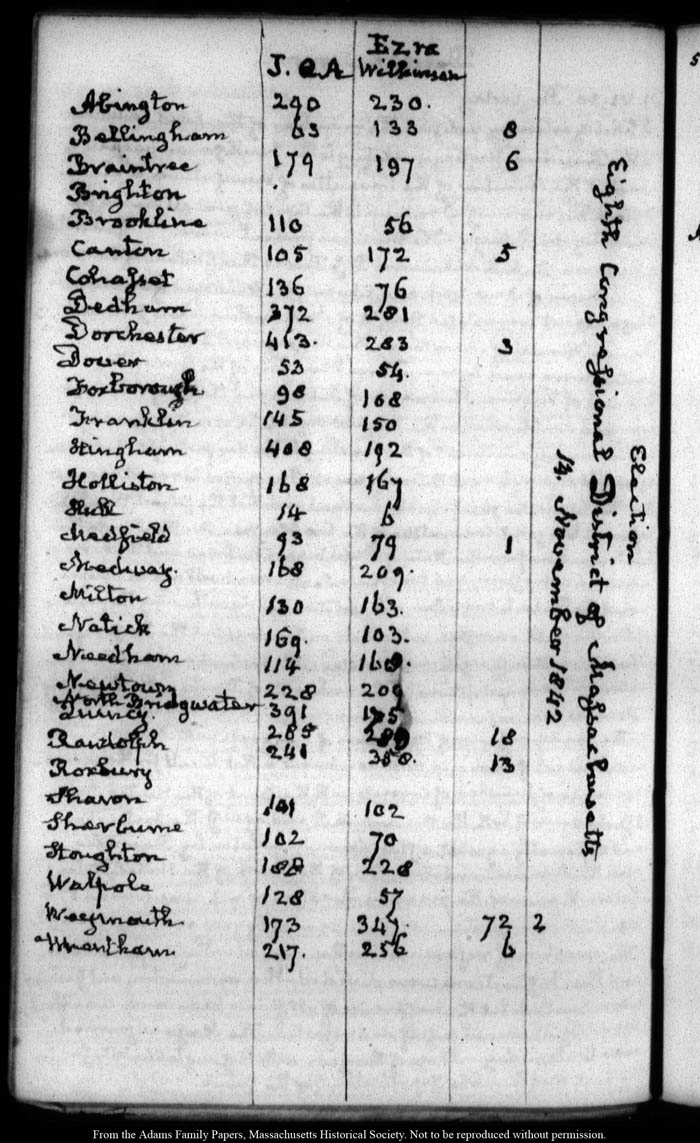 Ezra
J. Q A Wilkinson
Abington 290 230.
Bellingham 63 133 8
Braintree 179 197 6
Brighton
Brookline 110 56
Canton 105 172 5
Cohasset 136 76
Dedham 372 281
Dorchester 413. 283 3
Dover 53 54.
Foxborough 98 108
Franklin 145 150
Hingham 408 192
Holliston 168 167
Hull 14 6
Medfield 93 79 1
Medway. 168 209.
Milton 130 163.
Natick 169. 103.
Needham 114
Newtown 228 209
North Bridgwater 391
Quincy. 285
Randolph 241 18
Roxbury 358. 13
Sharon 101 102
Sherburne 102 70
Stoughton 188 228
Walpole 128 57
Weymouth 173 347. 72 2
Wrentham 217. 256 6
Election
Eighth Congressional District of Massachusetts
14. November 1842
From the Adams Family Papers, Massachusetts Historical Society. Not to be reproduced without permission.